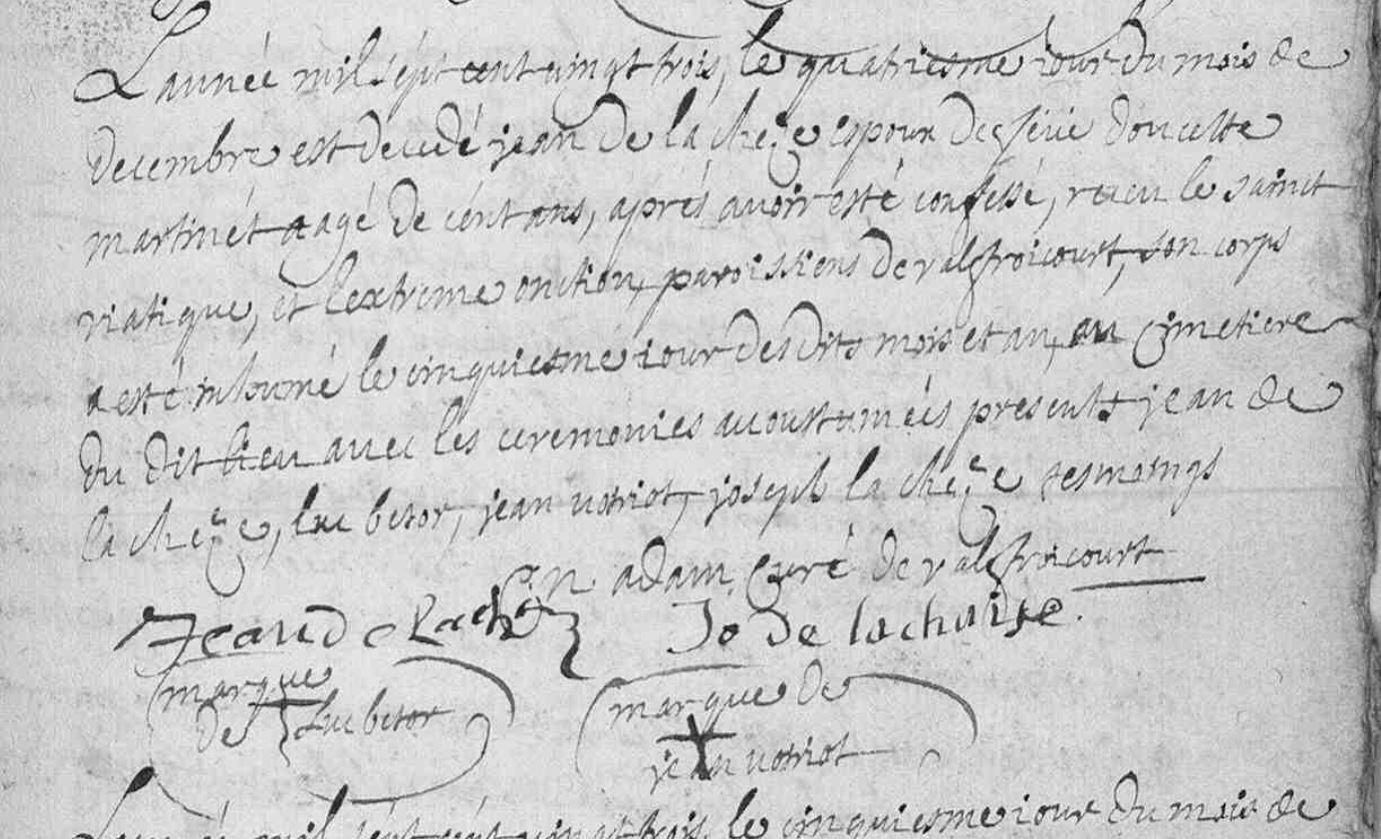 L'année mil sept cent vingt trois, le quatriesme iour du mois de
decembre est decedé jean de la cheze espoux de doucette
martinét aagé de cént ans, aprés avoir esté confessé, receu le sainct
viatique, et l'extreme onction, paroissiens de valfroicourt, son corps
a esté inhumé le cinquiesme iour desdits mois et an, au cimetiere
du dit lieu avec les ceremonies accoustumées presents jean de
la cheze, luc betor, jean votriot, joseph la cheze tesmoings
N adam curé de valfroicourt
Jean de Lache Jo de lachaise.
marque marque de
de luc betor
jean votriot
L'année mil sept cent vingt trois, le cinquiesme iour du mois de